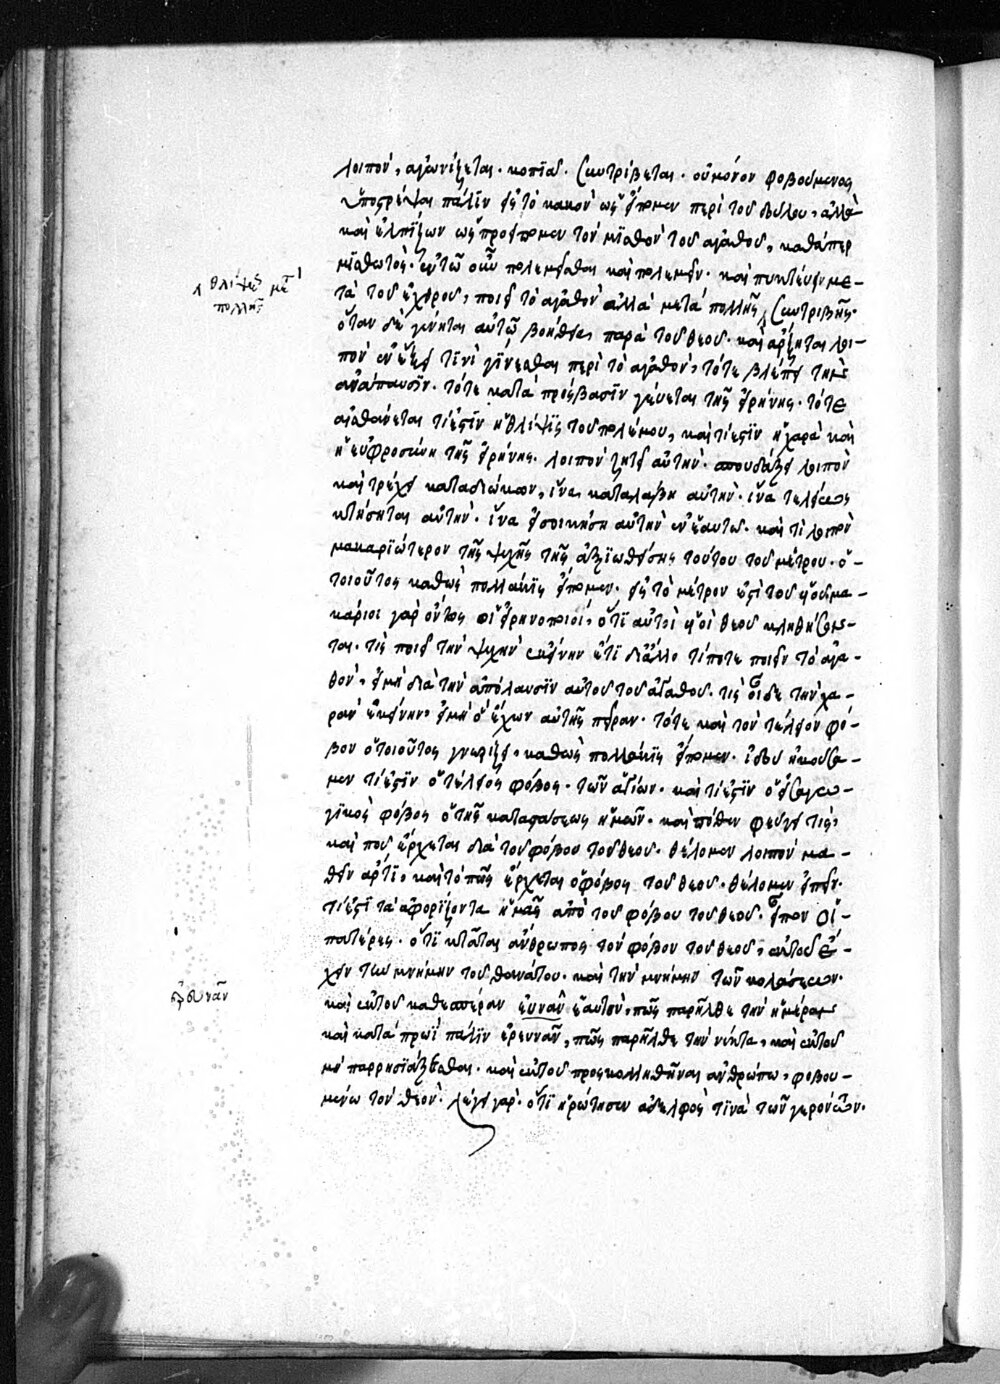 λοιπὸν, ἀγωνίζεται. κοπιᾶ. συντρίβεται. οὐ μόνον φοβούμενος
ὑποστρέψαι πάλιν εἰς τὸ κακὸν ὡς εἴπομεν περὶ τοῦ δούλου, ἀλλὰ
καὶ ἐλπίζων ὡς προείπομεν τὸν μισθὸν τοῦ ἀγαθοῦ, καθάπερ
μισθωτός. ἐν τῶ οὖν πολεμεῖσθαι καὶ πολεμεῖν. καὶ πυκτεύειν με-
τὰ τοῦ ἐχθροῦ, ποιεῖ τὸ ἀγαθὸν ἀλλὰ μετὰ πολλῆς συντριβῆς.
ὅταν δὲ γένηται αὐτῶ βοήθεια παρὰ τοῦ θεοῦ. καὶ ἄρξηται λοι-
πὸν ἐν ἕξει τινὶ γίνεσθαι περὶ τὸ ἀγαθὸν, τότε βλέπει τὴν
ἀνάπαυσιν. τότε κατὰ πρόσβασιν γεύεται τῆς εἰρήνης. τότε
αἰσθάνεται τί ἐστὶν ἡ θλίψις τοῦ πολέμου, καὶ τί ἐστὶν ἡ χαρὰ καὶ
ἡ εὐφροσύνη τῆς εἰρήνης. λοιπὸν ζητεῖ αὐτήν. σπουδάζει λοιπὸν
καὶ τρέχει καταδιώκων, ἵνα καταλάβη αὐτήν. ἵνα τελείως
κτήσηται αὐτήν. ἵνα εἰσοικήση αὐτὴν ἐν ἑαυτῶ. καὶ τί λοιπὸν
μακαριώτερον τῆς ψυχῆς τῆς ἀξιωθείσης τούτου τοῦ μέτρου. ὁ
τοιοῦτος καθὼς πολλάκις εἴπομεν. εἰς τὸ μέτρον ἐστὶ τοῦ υἱοῦ μα-
κάριοι γὰρ ὄντως οἱ εἰρηνοποιοὶ, ὅτι αὐτοὶ υἱοὶ θεοῦ κληθήσον-
ται. τίς ποιεῖ τὴν ψυχὴν ἐκείνην ἔτι δι' ἄλλο τίποτε ποιεῖν τὸ ἀγα-
θόν, εἰ μὴ διὰ τὴν ἀπόλαυσιν αὐτοῦ τοῦ ἀγαθοῦ. τίς οἶδε τὴν χα-
ρὰν ἐκείνην εἰ μὴ ὁ ἔχων αὐτῆς πεῖραν. τότε καὶ τὸν τέλειον φό-
βον ὁ τοιοῦτος γνωρίζει. καθὼς πολλάκις εἴπομεν. ἰδοὺ ἠκούσα-
μεν τί ἐστὶν ὁ τέλειος φόβος. τῶν ἁγίων. καὶ τί ἐστὶν ὁ εἰσαγω-
γικὸς φόβος ὁ τῆς καταστάσεως ἡμῶν. καὶ πόθεν φεύγει τίς,
καὶ ποῦ ἔρχεται διὰ τοῦ φόβου τοῦ θεοῦ. θέλομεν λοιπὸν μα-
θεῖν ἄρτι, καὶ τὸ πῶς ἔρχεται ὁ φόβος τοῦ θεοῦ. θέλομεν εἰπεῖν.
τί ἐστὶ τὰ ἀφορίζοντα ἡμᾶς ἀπὸ τοῦ φόβου τοῦ θεοῦ. εἶπον οἱ
πατέρες. ὅτι κτᾶται ἄνθρωπος τὸν φόβον τοῦ θεοῦ, ἐκ τοῦ ἔ-
χειν τὴν μνήμην τοῦ θανάτου. καὶ τὴν μνήμην τῶν κολάσεων.
καὶ ἐκ τοῦ καθεσπέραν ἐυναν ἑαυτὸν, πῶς παρῆλθε τὴν ἡμέραν
καὶ κατὰ πρωὶ πάλιν ἐρευνᾶν, πῶς παρῆλθε τὴν νύκτα, καὶ ἐκ τοῦ
μὴ παρρησιάζεσθαι. καὶ ἐκ τοῦ προσκολληθῆναι ἀνθρώπω, φοβου-
μένω τὸν θεόν. λέγει γὰρ. ὅτι ἠρώτησεν ἀδελφὸς τινὰ τῶν γερόντων.
θλίψεως καὶ
πολλῆς
ἐρευνᾶν